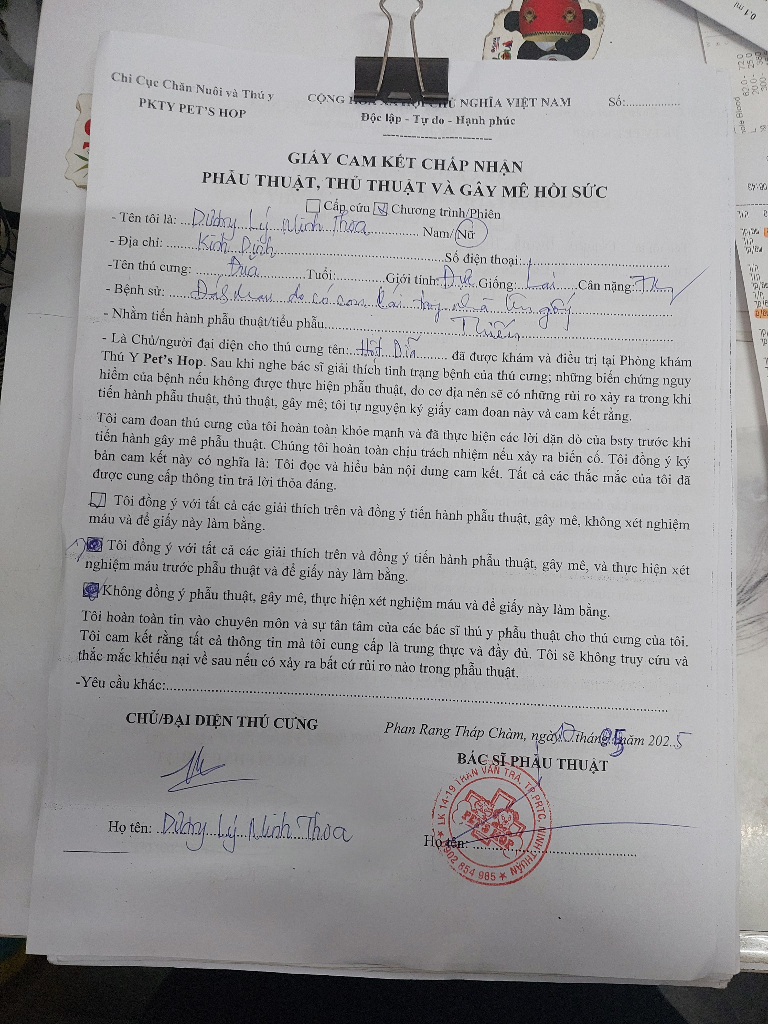 Chi Cục Chăn Nuôi và Thú y
PKTY PET'S HOP
CỘNG HÒA XÃ HỘI CHỦ NGHĨA VIỆT NAM
Số:................
Độc lập - Tự do - Hạnh phúc
GIẤY CAM KẾT CHẤP NHẬN
PHẪU THUẬT, THỦ THUẬT VÀ GÂY MÊ HỒI SỨC
Cấp cứu Chương trình/Phiên
- Tên tôi là: Dương Lý Minh Thoa Nam/Nữ
- Địa chỉ: Kinh Dinh Số điện thoại:
-Tên thú cưng: Đưa Tuổi: Giới tính: Đực Giống: Lai Cân nặng: 7kg
- Bệnh sử:
- Nhằm tiến hành phẫu thuật/tiểu phẫu Thiến
- Là Chủ/người đại diện cho thú cưng tên: đã được khám và điều trị tại Phòng khám
Thú Y Pet's Hop. Sau khi nghe bác sĩ giải thích tình trạng bệnh của thú cưng; những biến chứng nguy
hiểm của bệnh nếu không được thực hiện phẫu thuật, do cơ địa nên sẽ có những rủi ro xảy ra trong khi
tiến hành phẫu thuật, thủ thuật, gây mê; tôi tự nguyện ký giấy cam đoan này và cam kết rằng.
Tôi cam đoan thú cưng của tôi hoàn toàn khỏe mạnh và đã thực hiện các lời dặn dò của bsty trước khi
tiến hành gây mê phẫu thuật. Chúng tôi hoàn toàn chịu trách nhiệm nếu xảy ra biến cố. Tôi đồng ý ký
bản cam kết này có nghĩa là: Tôi đọc và hiểu bản nội dung cam kết. Tất cả các thắc mắc của tôi đã
được cung cấp thông tin trả lời thỏa đáng.
Tôi đồng ý với tất cả các giải thích trên và đồng ý tiến hành phẫu thuật, gây mê, không xét nghiệm
máu và để giấy này làm bằng.
Tôi đồng ý với tất cả các giải thích trên và đồng ý tiến hành phẫu thuật, gây mê, và thực hiện xét
nghiệm máu trước phẫu thuật và để giấy này làm bằng.
Không đồng ý phẫu thuật, gây mê, thực hiện xét nghiệm máu và để giấy này làm bằng.
Tôi hoàn toàn tin vào chuyên môn và sự tân tâm của các bác sĩ thú y phẫu thuật cho thú cưng của tôi.
Tôi cam kết rằng tất cả thông tin mà tôi cung cấp là trung thực và đầy đủ. Tôi sẽ không truy cứu và
thắc mắc khiếu nại về sau nếu có xảy ra bất cứ rủi ro nào trong phẫu thuật.
-Yêu cầu khác:
CHỦ/ĐẠI DIỆN THÚ CƯNG
Phan Rang Tháp Chàm, ngày tháng 05 năm 2025
BÁC SĨ PHẪU THUẬT
Họ tên: Dương Lý Minh Thoa
Họ tên:
LK 14-19 TRẦN VĂN TRÀ, TP.PRTC, NINH THUẬN
PET'S HOP
0902 854 985